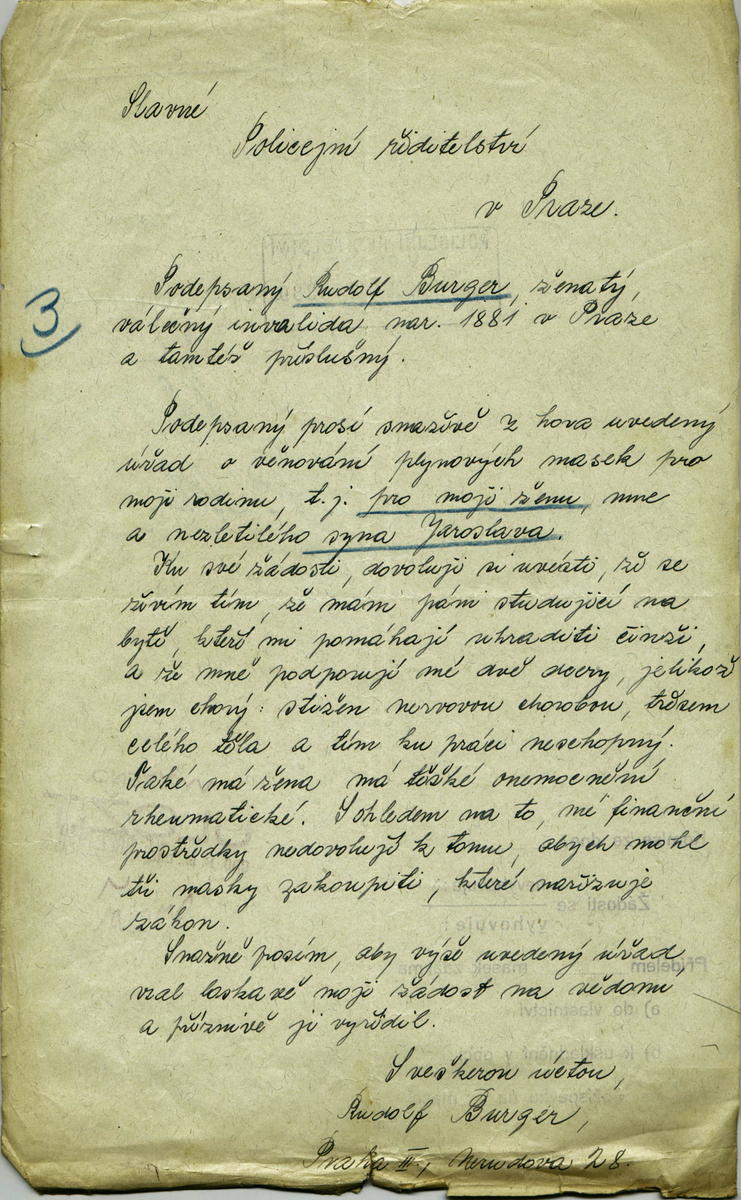 Slavné
Policejní ředitelství
v Praze.
3
Podepsaný Rudolf Burger, ženatý,
válečný invalida nar. 1881 v Praze
a tamtéž příslušný.
Podepsaný prosí snažívě z hova uvedený
úřad o věnování plynových masek pro
moji rodinu, t.j. pro moji ženu, mne
a nezletilého syna Jaroslava.
Ku své žádosti, dovoluji si uvésti, že se
živím tím, že mám pány studující na
bytě, kteří mi pomáhají uhraditi činži,
a že mně podporují mé dvě dcery, jelikož
jsem chorý: stižen nervovou chorobou, třesem
celého těla a tím ku práci neschopný.
Také má žena má těžké onemocnění
rheumatické. S ohledem na to, mé finanční
prostředky nedovolují k tomu, abych mohl
tři masky zakoupiti, které nařizuje
zákon.
Snažně posím, aby výše uvedený úřad
vzal laskavě moji žádost na vědomí
a příznivě ji vyřídil.
S veškerou úctou,
Rudolf Burger,
Praha III., Nerudova 28.